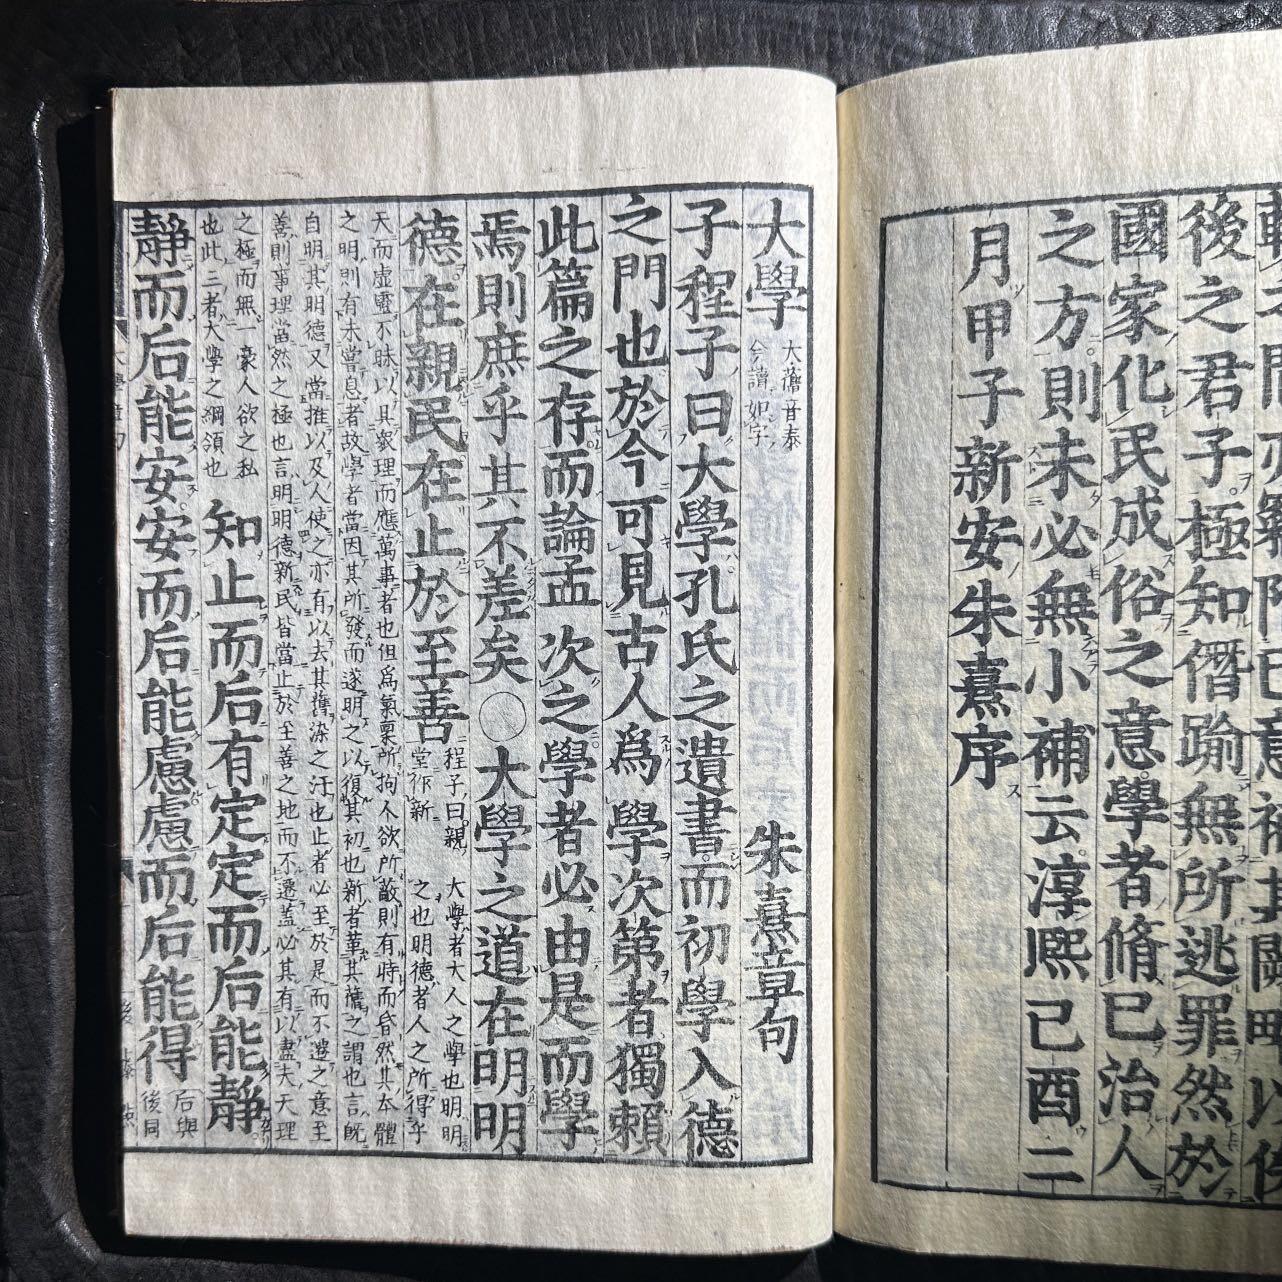 之間亦竊附己意補其闕略以俟
後之君子極知僭踰無所逃罪然於
國家化民成俗之意學者脩已治人
之方則未必無小補云淳熈已酉二
月甲子新安朱熹序
大學
大舊音泰
今讀如字
朱熹章句
子程子曰大學孔氏之遺書而初學入德
之門也於今可見古人爲學次第者獨賴
此篇之存而論孟次之學者必由是而學
焉則庶乎其不差矣○大學之道在明明
德在親民在止於至善
程子曰親
當作新
大學者大人之學也明明
之也明德者人之所得乎
天而虛靈不昧以具衆理而應萬事者也但爲氣稟所拘人欲所蔽則有時而昏然其本體
之明則有未嘗息者故學者當因其所發而遂明之以復其初也新者革其舊之謂也言旣
自明其明德又當推以及人使之亦有以去其舊染之汙也止者必至於是而不遷之意至
善則事理當然之極也言明明德新民皆當止於至善之地而不遷蓋必其有以盡夫天理
之極而無一豪人欲之私
也此三者大學之綱領也
知止而后有定定而后能靜
靜而后能安安而后能慮慮而后能得
后與
後同